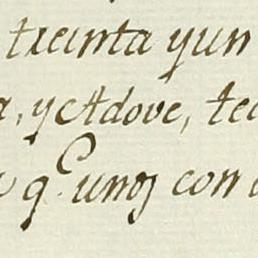 treinta y un
a, y Adove, tec
q.^e unos con